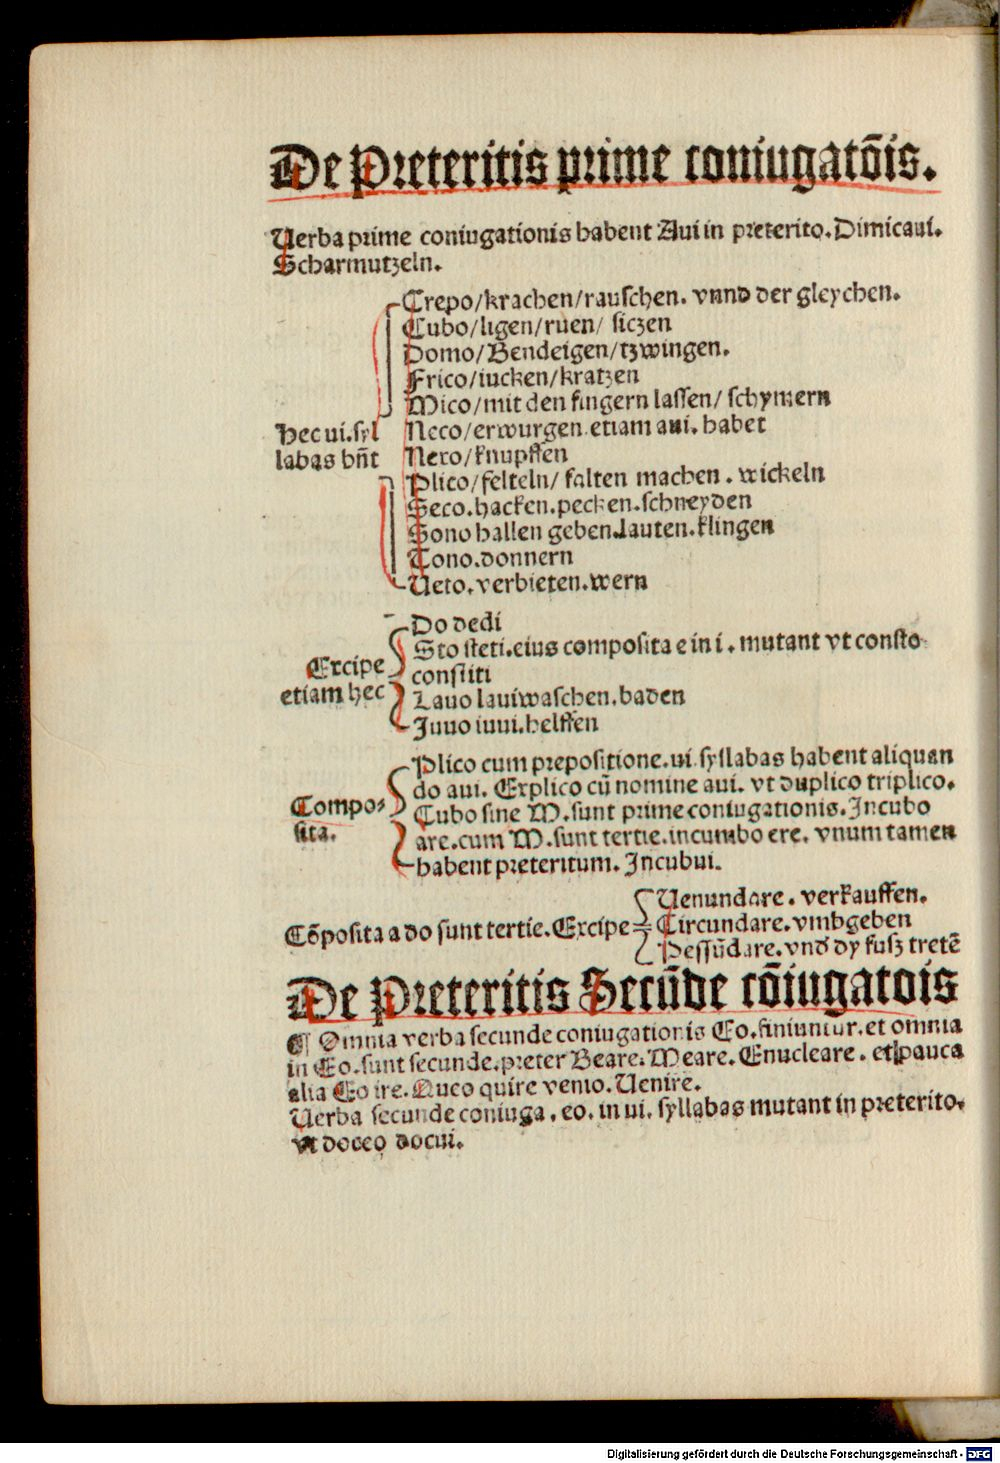 De Preteritis prime coniugatõis.
Uerba prime coniugationis habent Aui in preterito. Dimicaui.
Scharmutzeln.
Crepo/krachen/rauschen. vnnd der gleychen.
Cubo/ligen/ruen/ siczen
Domo/Bendeigen/tzwingen.
Frico/iucken/kratzen
Mico/mit den fingern lassen/ schymern
Hec ui. syl Neco/erwurgen etiam aui. habet
labas hñt Nexo/knupffen
Plico/felteln/ falten machen. wickeln
Seco. hacken. pecken. schneyden
Sono hallen geben. lauten. klingen
Tono. donnern
Ueto. verbieten. wern
Do dedi
Sto steti. eius composita e in i. mutant vt consto
Excipe constiti
etiam hec Lauo laui waschen. baden
Iuuo iuui. helffen
Plico cum prepositione. ui syllabas habent aliquan
do aui. Explico cũ nomine aui. vt duplico triplico.
Compo⸗ Cubo sine M. sunt prime coniugationis. Incubo
sita. are. cum M. sunt tertie. incumbo ere. vnum tamen
habent preteritum. Incubui.
Uenundare. verkauffen.
Cõposita a do sunt tertie. Excipe Circundare. vmbgeben
Pessũdare. vnd dy fusz tretẽ
De Preteritis Secũde cõiugatois
¶ Omnia verba secunde coniugationis Eo. finiuntur. et omnia
in Eo. sunt secunde. preter Beare. Meare. Enucleare. et pauca
alia Eo ire. Queo quire venio. Uenire.
Uerba secunde coniuga. eo. in ui. syllabas mutant in preterito.
vt doceo docui.
Digitalisierung gefördert durch die Deutsche Forschungsgemeinschaft - DFG